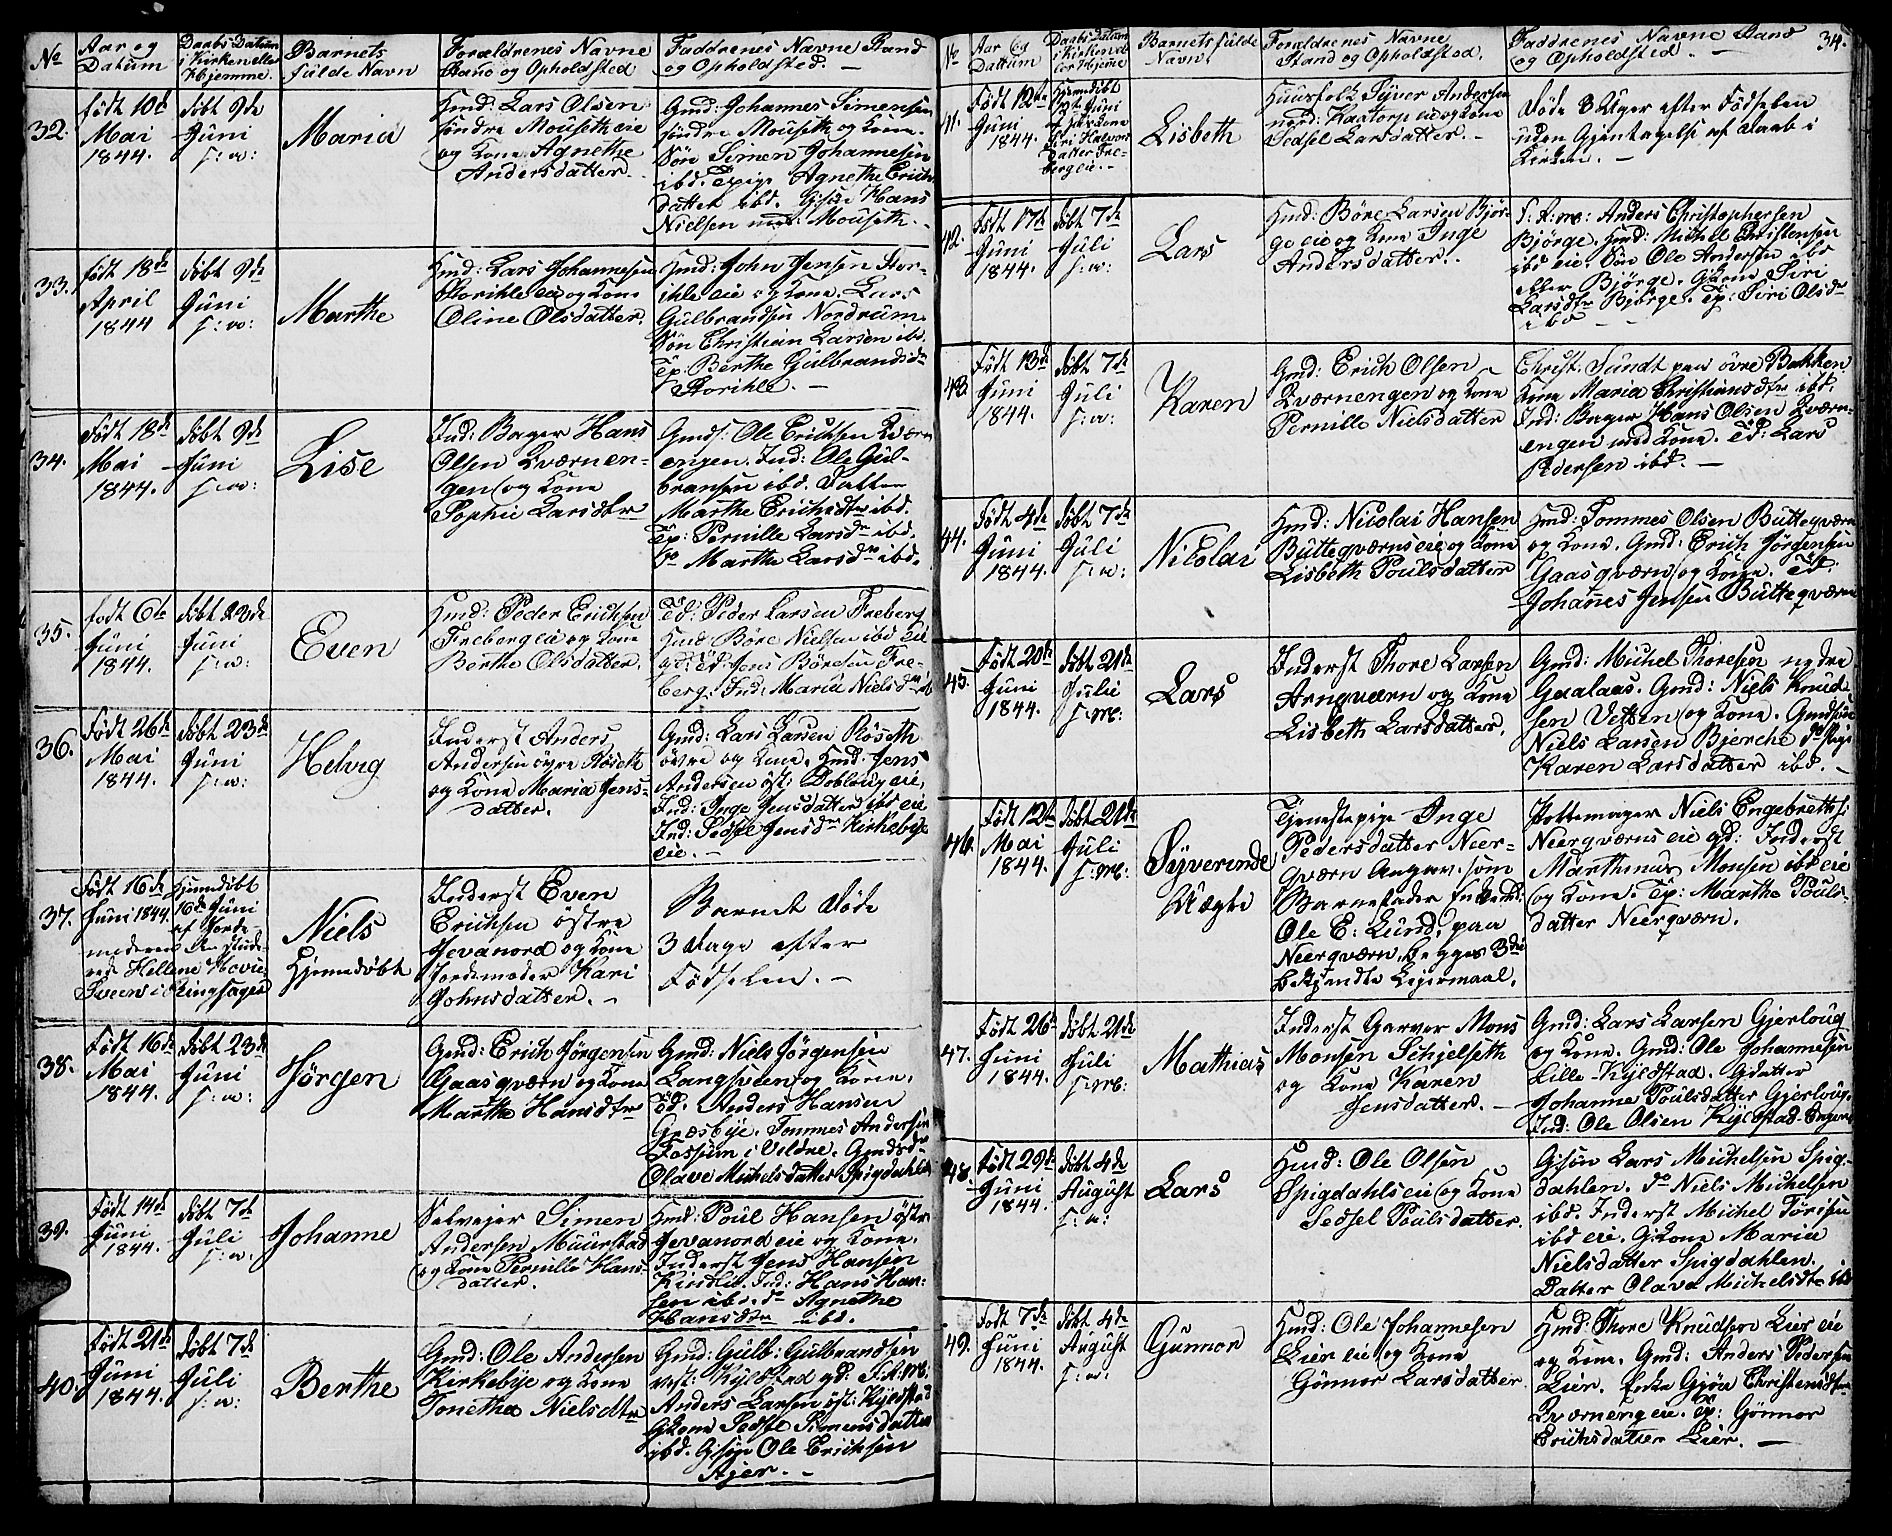 No
Aar og
Datum
Daabs Datum
i Kirken eller
Hjemme.
Barnets
fulde Navn
Forældrenes Navne
Stand og Opholdsted
Faddrenes Navne Stand
og Opholdsted. —
32.
født 10de
Mai
1844.
døbt 9de
Juni
s: w:
Maria
Hmd: Lars Olsen
søndre Mouseth eie
og Kone Agnethe
Andersdatter.
Gmd: Johannes Simensen
søndre Mouseth og Kone.
Søn Simen Johannesen
ibd. Tpige Agnethe Erichs
datter ibd. Gsøn Hans
Nielsen Mouseth.
33.
født 18de
April
1844
døbt 9de
Juni
s: w:
Marthe
Hmd: Lars Johannesen
Storihle eie og Kone
Oline Olsdatter.
Hmd: John Jensen Stor-
ihle eie og Kone. Lars
Gulbrandsen Nordrum.
Søn Christian Larsen ibd.
Tp. Berthe Gulbrandsdr
Storihle. —
34.
født 18de
Mai
1844.
døbt 9de
Juni
s: w:
Lise
Ind: Bager Hans
Olsen Qværnen-
gen og Kone
Sophie Larsdtr
Gmds: Ole Erichsen Qværn
engen. Ind: Ole Gul-
bransen ibd. Datter
Marthe Erichsdtr ibd.
Tp: Pernille Larsdr ibd.
do Marthe Larsdr ibd.
35.
født 6de
Juni
1844.
døbt 23de
Juni
s: w:
Even
Hmd: Peder Erichsen
Freberg eie og Kone
Berthe Olsdatter.
Td: Peder Larsen Freberg
Hmd Børe Nielsen ibd eie
gd: Td: Jens Børesen Fre-
berg. Ind: Maria Nielsdr ib
36.
Født 26de
Mai
1844.
døbt 23de
Juni
s: w:
Helvig
Inderst Anders
Andersen øvre Røseth
og Kone Maria Jens-
datter.
Gmd: Lars Larsen Røseth
øvre og Kone. Hmd: Jens
Andersen øst: Dobloug eie,
Ind: Inge Jensdatter ibd eie
Ind: Sedsel Jensdr Kirkebye
eie. —
37.
Født 16de
Juni 1844.
Hjemdøbt
16de Juni
af Jorde-
moderen
Hellene Hovie
Sveen i Ringsager
Niels
Hjemdøbt
Inderst Even
Erichsen østre
Jevanord og Kone
Jordemoder Kari
Johnsdatter. —
Barnet døde
3 dage efter
Fødselen. —
38.
Født 16de
Mai
1844.
døbt 23de
Juni
s: w:
Jørgen
Gmd: Erich Jørgensen
Gaasqværn og Kone
Marthe Hansdtr
Gmd: Niels Jørgensen
Langsveen og Kone.
Td: Anders Hansen
Græsbye. Tommes Andersen
Fossum i Veldre. Gmdsdr
Olave Michelsdatter Spigdahlen
39.
Født 14de
Juni
1844.
døbt 7de
Juli
s: w:
Johanne
Selveier Simen
Andersen Muurstad
og Kone Pernille Hans-
datter.
Hmd: Poul Hansen østre
Jevanord eie og Kone.
Inderst Jens Hansen
Kindlie. Ind: Hans Han-
sen ibd. do Agnethe
Hansdtr ibd.
40.
Født 21de
Juni
1844.
døbt 7de
Juli
s: w:
Berthe
Gmd: Ole Andersen
Kirkebye og Kone
Tonetha Nielsdtr
Gmd: Gulb: Gulbrandsen
vest: Kyldstad gd: S: A: M:
Anders Larsen øst: Kyldstad
Gkone Sedsel Simensdatter
ibd. Gsøn Ole Erichsen
Ajer. —
No
Aar og
Dattum
Daabs Datum
i Kirken el-
ler Hjeme
Barnets fulde
Navn
Forældrenes Navne
Stand og Opholdsted.
Faddrenes Navne Stand
og Opholdsted. —
34.
41.
Født 12te
Juni
1844.
Hjemdøbt
Juni
af
Siri Halvors
datter Fre-
berg eie. —
Lisbeth
Huusfolk Syver Andersen
Kaatorp eie og Kone
Sedsel Larsdatter. —
Døde 3 Uger efter Fødselen
uden Gjentagelse af Daab i
Kirken. —
42.
Født 17de
Juni
1844.
døbt 7de
Juli
s: w:
Lars
Hmd: Børe Larsen Bjør-
ge eie og Kone Inge
Andersdatter.
S: A: M: Anders Christophersen
Bjørge. Hmd: Michel Christensen
ibd eie. Søn Ole Andersen ibd
eller Bjørge. Gkone Siri
Larsdtr Bjørge. Tp: Siri Olsdr
ibd —
43.
Født 13de
Juni
1844.
døbt 7de
Juli
s: w:
Karen
Gmd: Erich Olsen
Qværnengen og Kone
Pernille Nielsdatter
Christ: Sundt paa øvre Bakken
Kone Maria Christiansdtr ibd.
Ind: Bager Hans Olsen Qværn-
engen med Kone. Td: Lars
Pedersen ibd. —
44.
Født 4de
Juni
1844.
døbt 7de
Juli
s: w:
Nicolai
Hmd: Nicolai Hansen
Butteqværns eie og Kone
Lisbeth Poulsdatter
Hmd: Tommes Olsen Butteqværn
og Kone. Gmd: Erich Jørgensen
Gaasqværn og Kone. Td:
Johannes Jensen Butteqværn
45.
Født 20de
Juni
1844.
døbt 21de
Julie
s: M:
Lars
Inderst Thore Larsen
Arnqværn og Kone
Lisbeth Larsdatter.
Gmd: Michel Thoresen nedre
Gaalaas. Gmd: Niels Knud-
sen Vetten og Kone. Gmdsøn
Niels Larsen Bjerche do Pige
Karen Larsdatter ibd. —
46.
Født 12te
Mai
1844.
døbt 21de
Juli
s: M:
Syverinde
Uægte
Tjenestepige Inge
Pedersdatter Neer-
qværn Angav som
Barnefader
Ole E: Lund, paa
Neerqværn, begges 3die
bekjendte Lejermaal.
Pottemager Niels Engebrethsen
Neerqværns eie gd: Inderst
Marthinus Monsen ibd eie
og Kone. Tp: Marthe Pouls-
datter Neerqværn.
47.
Født 26de
Juni
1844.
døbt 21de
Juli
s: M:
Mathias
Inderst Garver Mons
Monsen Schjelseth
og Kone Karen
Jensdatter. —
Gmd: Lars Larsen Gjerloug
og Kone. Gmd: Ole Johannesen
Lille-Kyldstad. Gdatter
Johanne Poulsdatter Gjerloug.
Ind: Ole Olsen Kyldstad
48.
Født 29de
Juni
1844.
døbt 4de
August
s: w:
Lars
Hmd: Ole Olsen
Spigdahls eie og Kone
Sedsel Poulsdatter.
Gsøn Lars Michelsen Spig-
dahlen. do Niels Michelsen
ibd. Inderst Michel Torisen
ibd eie. Gkone Maria
Nielsdatter Spigdahlen.
Datter Olava Michelsdtr ibd
49.
Født 7de
Juni
1844.
døbt 4de
August
s: w:
Gunnor
Hmd: Ole Johannesen
Lier eie og Kone
Gønnor Larsdatter
Hmd: Thore Knudsen Lier eie
og Kone. Gmd: Anders Pedersen
Lier. Enke Gjøa Christensdtr
Qværneng eie. Tp: Gønnor
Erichsdatter Lier. —